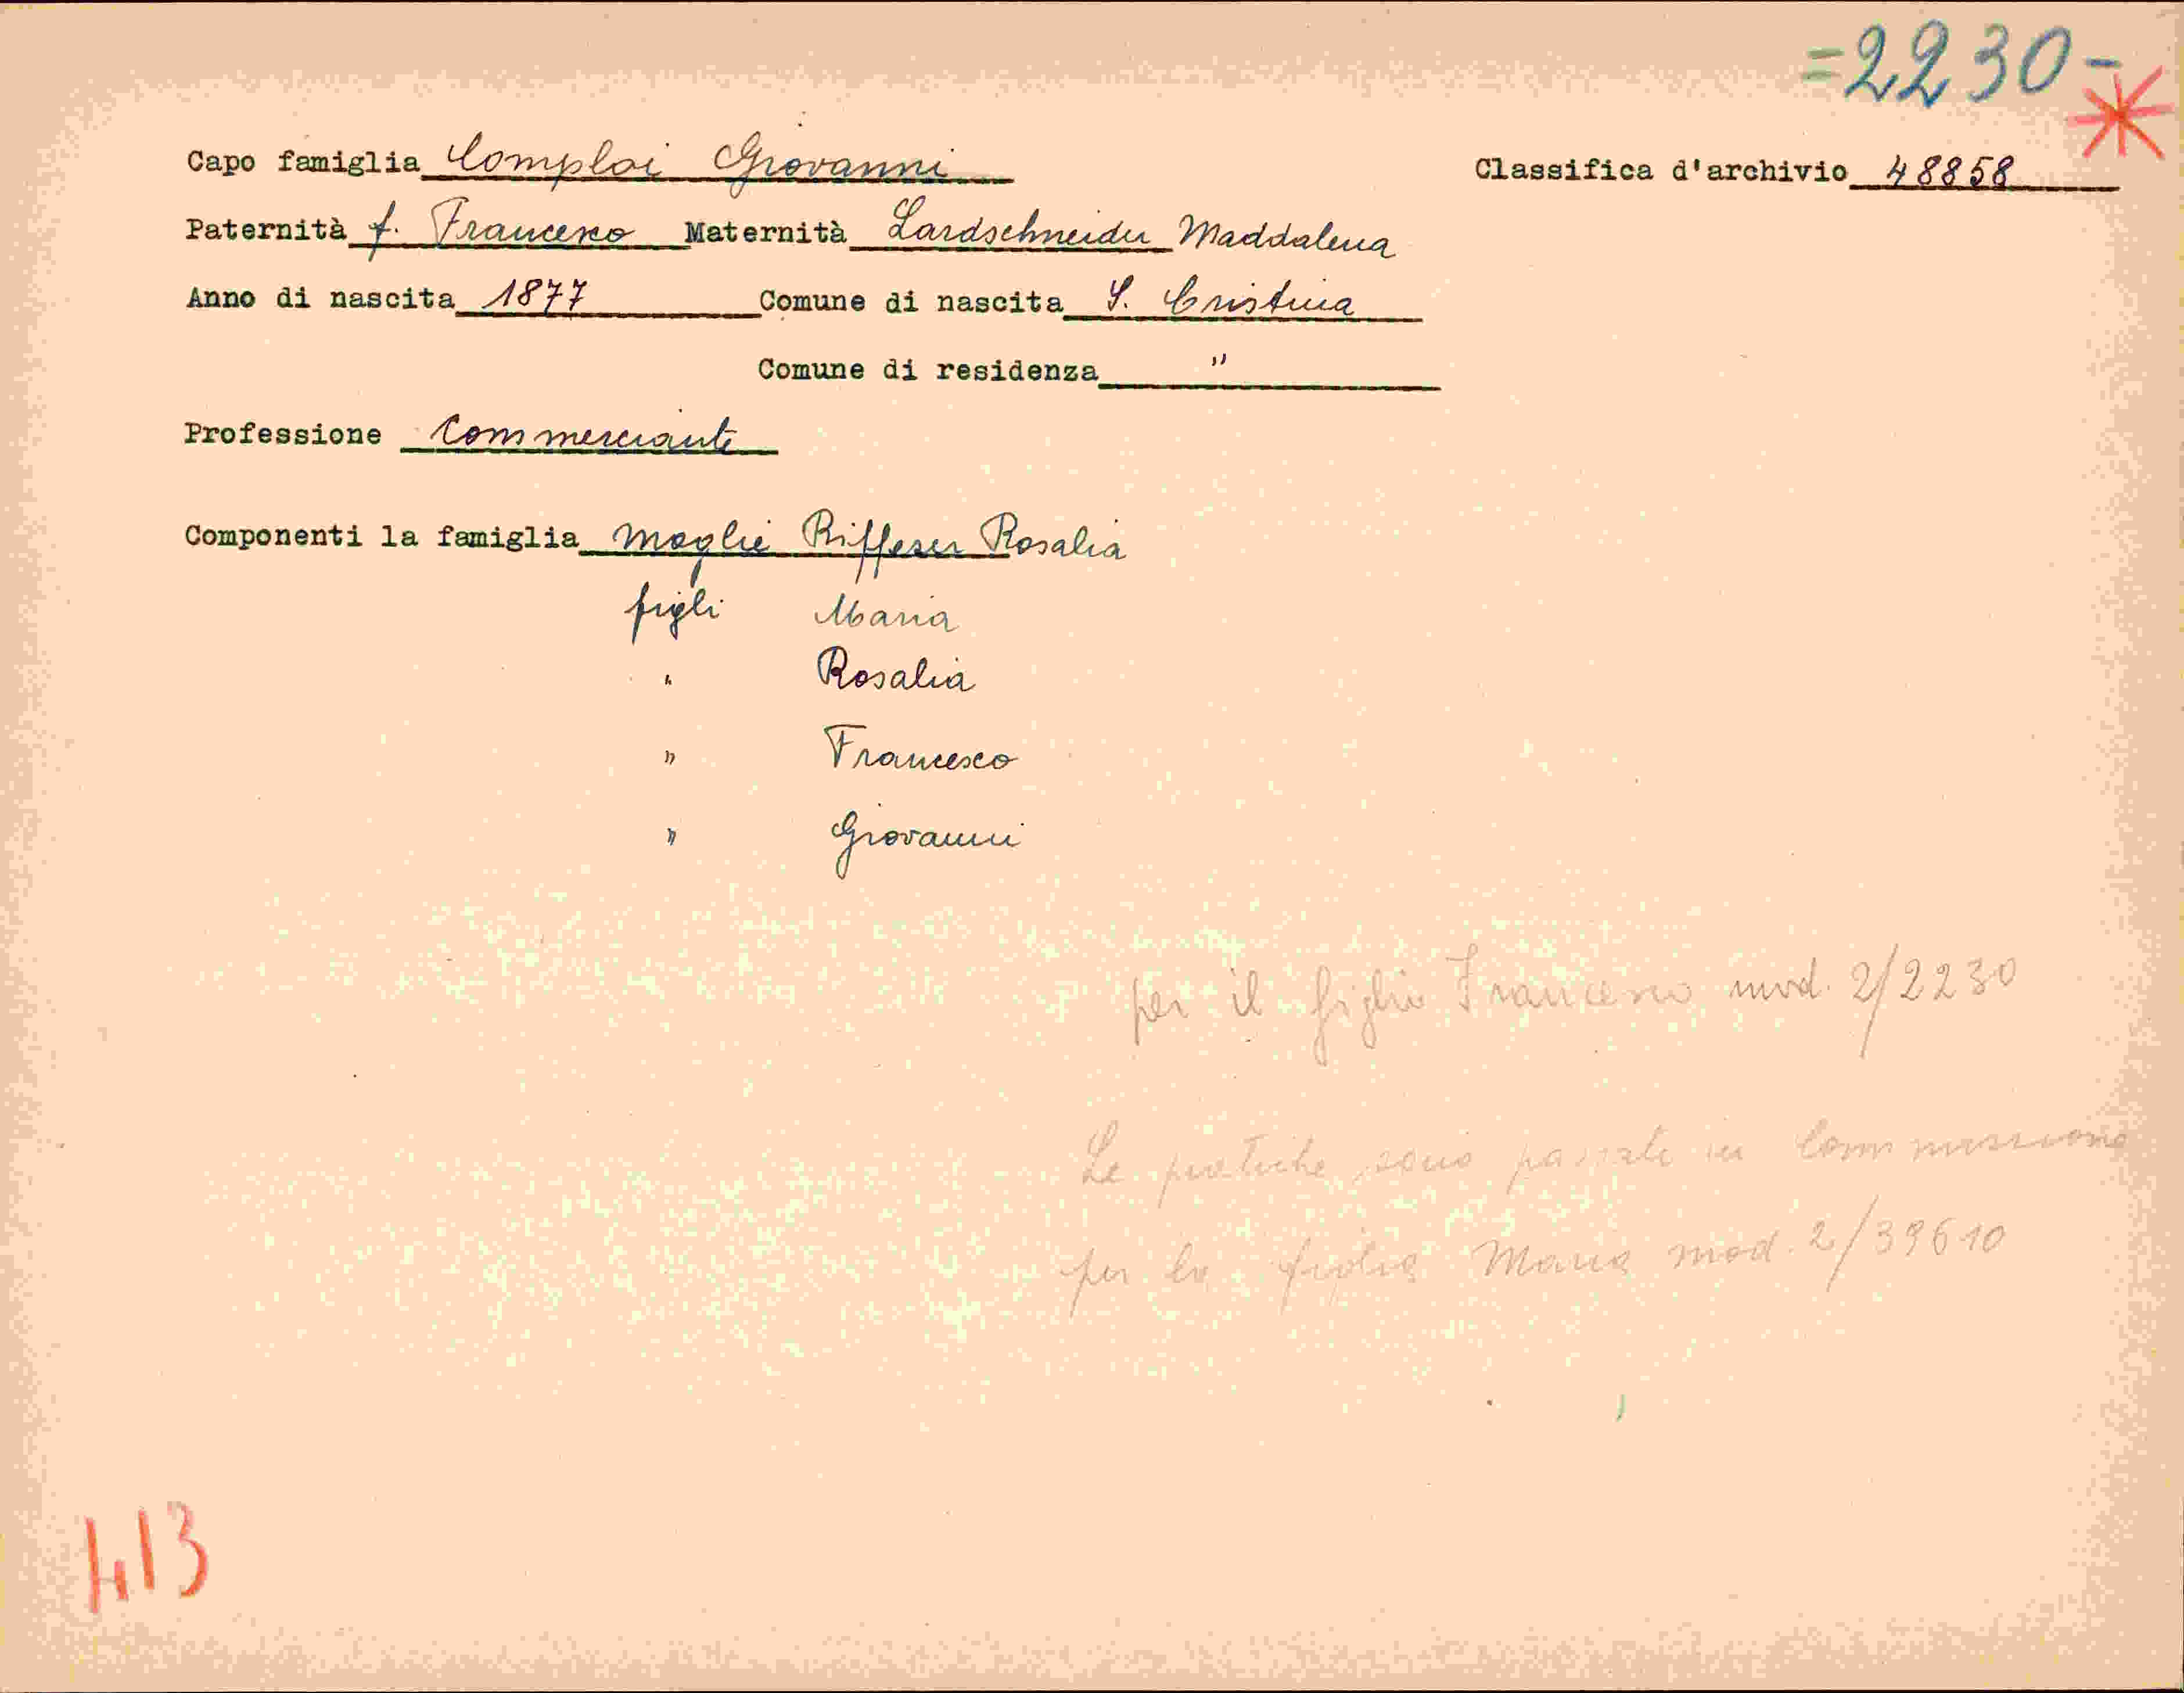 =2230-
Capo famiglia Comploi Giovanni Classifica d'archivio 48858
Paternità f. Francesco Maternità Lardschneider Maddalena
Anno di nascita 1877 Comune di nascita S. Cristina
Comune di residenza "
Professione Commerciante
Componenti la famiglia moglie Riffeser Rosalia
figli Maria
" Rosalia
" Francesco
" Giovanni
per il figlio Francesco mod. 2/2230
Le pratiche sono passate in Commissione
per la figlia Maria mod. 2/39610
413